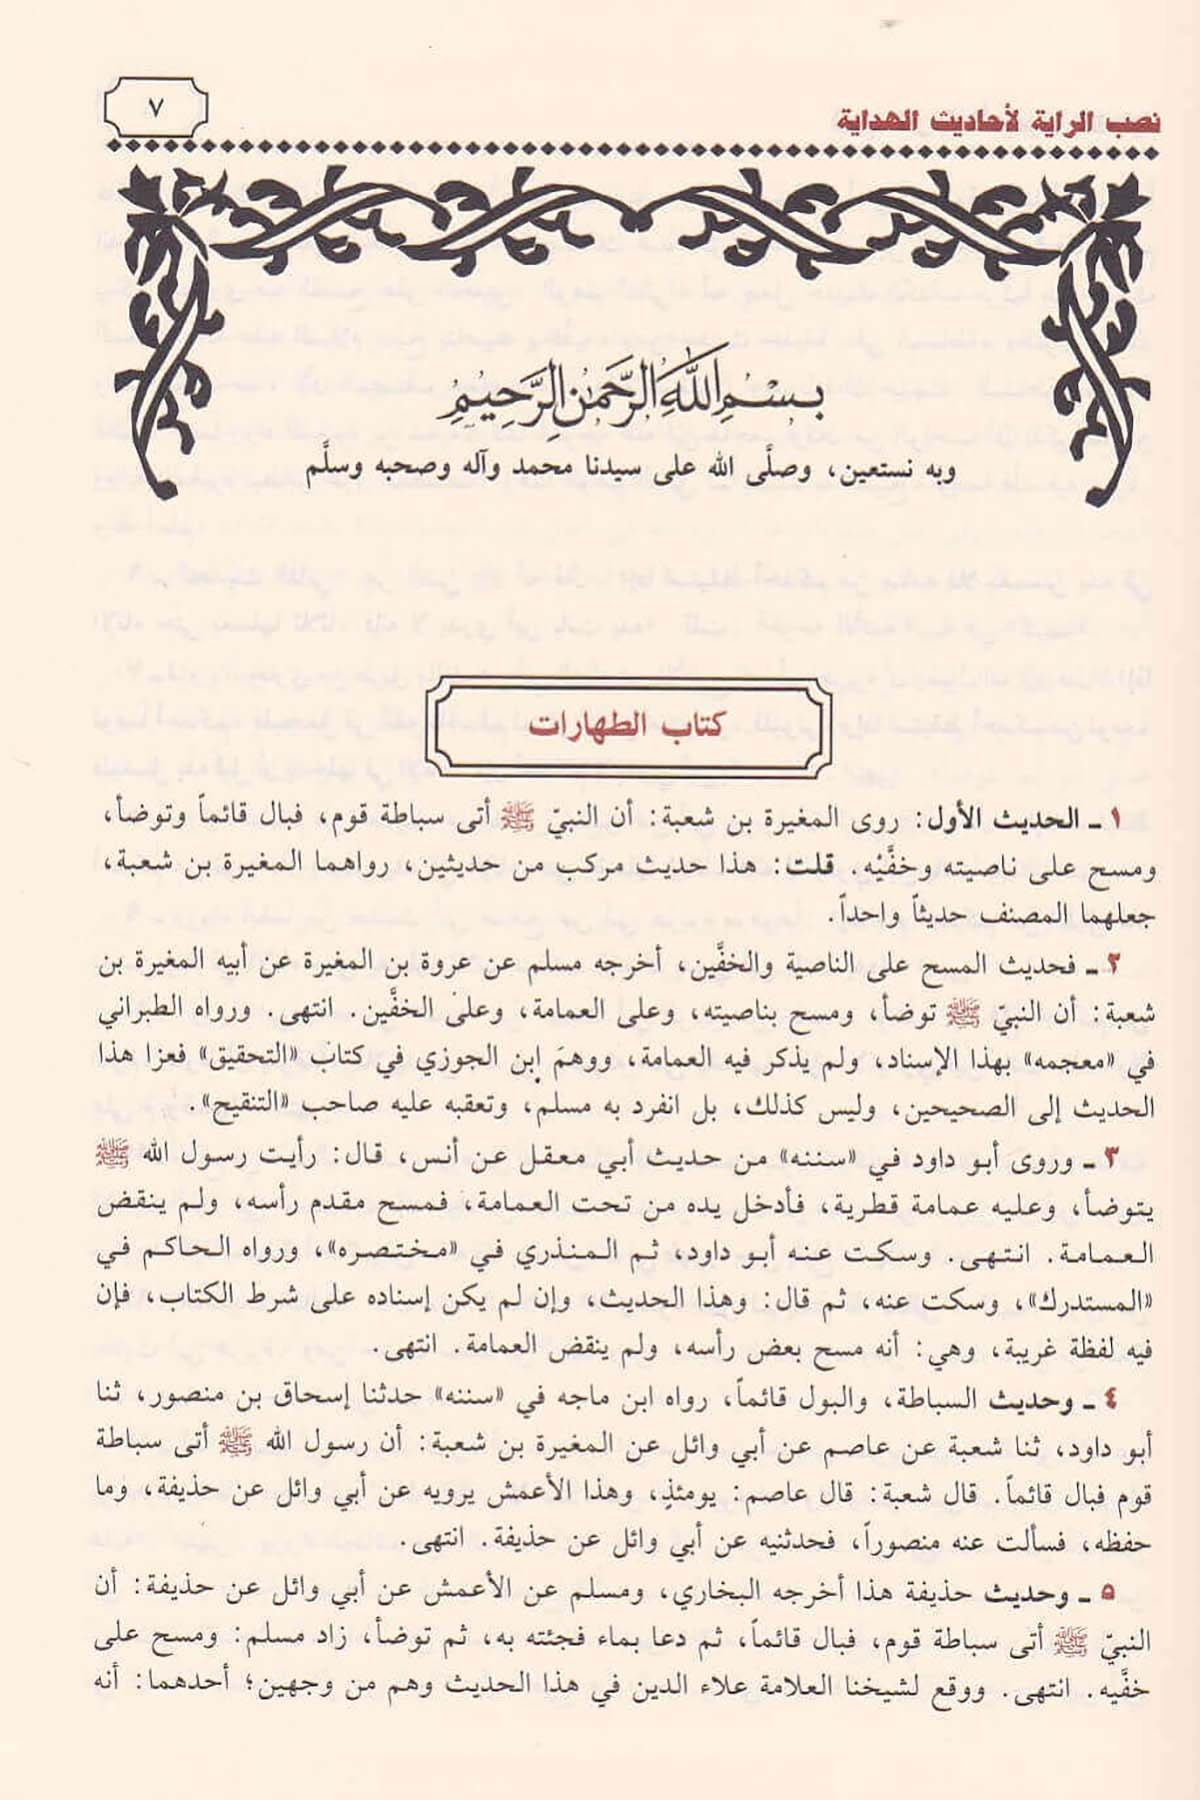 نصب الراية لأحاديث الهداية
٧
بِسْمِ اللَّهِ الرَّحْمَٰنِ الرَّحِيمِ
وبه نستعين، وصلَّى الله على سيدنا محمد وآله وصحبه وسلَّم
كتاب الطهارات
١ ـ الحديث الأول: روى المغيرة بن شعبة: أن النبيّ ﷺ أتى سباطة قوم، فبال قائماً وتوضأ،
ومسح على ناصيته وخفَّيْه. قلت: هذا حديث مركب من حديثين، رواهما المغيرة بن شعبة،
جعلهما المصنف حديثاً واحداً.
٢ ـ فحديث المسح على الناصية والخفَّين، أخرجه مسلم عن عروة بن المغيرة عن أبيه المغيرة بن
شعبة: أن النبيّ ﷺ توضأ، ومسح بناصيته، وعلى العمامة، وعلى الخفَّين. انتهى. ورواه الطبراني
في «معجمه» بهذا الإسناد، ولم يذكر فيه العمامة، ووهمَ ابن الجوزي في كتاب «التحقيق» فعزا هذا
الحديث إلى الصحيحين، وليس كذلك، بل انفرد به مسلم، وتعقبه عليه صاحب «التنقيح».
٣ ـ وروى أبو داود في «سننه» من حديث أبي معقل عن أنس، قال: رأيت رسول الله ﷺ
يتوضأ، وعليه عمامة قطرية، فأدخل يده من تحت العمامة، فمسح مقدم رأسه، ولم ينقض
العمامة. انتهى. وسكت عنه أبو داود، ثم المنذري في «مختصره»، ورواه الحاكم في
«المستدرك»، وسكت عنه، ثم قال: وهذا الحديث، وإن لم يكن إسناده على شرط الكتاب، فإن
فيه لفظة غريبة، وهي: أنه مسح بعض رأسه، ولم ينقض العمامة. انتهى.
٤ ـ وحديث السباطة، والبول قائماً، رواه ابن ماجه في «سننه» حدثنا إسحاق بن منصور، ثنا
أبو داود، ثنا شعبة عن عاصم عن أبي وائل عن المغيرة بن شعبة: أن رسول الله ﷺ أتى سباطة
قوم فبال قائماً. قال شعبة: قال عاصم: يومئذٍ، وهذا الأعمش يرويه عن أبي وائل عن حذيفة، وما
حفظه، فسألت عنه منصوراً، فحدثنيه عن أبي وائل عن حذيفة. انتهى.
٥ ـ وحديث حذيفة هذا أخرجه البخاري، ومسلم عن الأعمش عن أبي وائل عن حذيفة: أن
النبيّ ﷺ أتى سباطة قوم، فبال قائماً، ثم دعا بماء فجئته به، ثم توضأ، زاد مسلم: ومسح على
خفَّيه. انتهى. ووقع لشيخنا العلامة علاء الدين في هذا الحديث وهم من وجهين؛ أحدهما: أنه